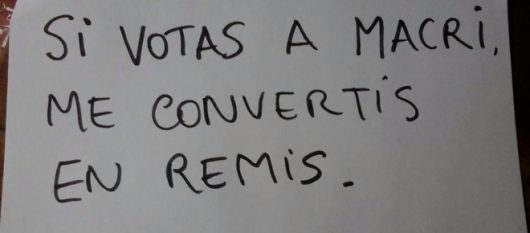 Si VOTAS A MACRi,
ME CONVERTiS
EN REMiS.